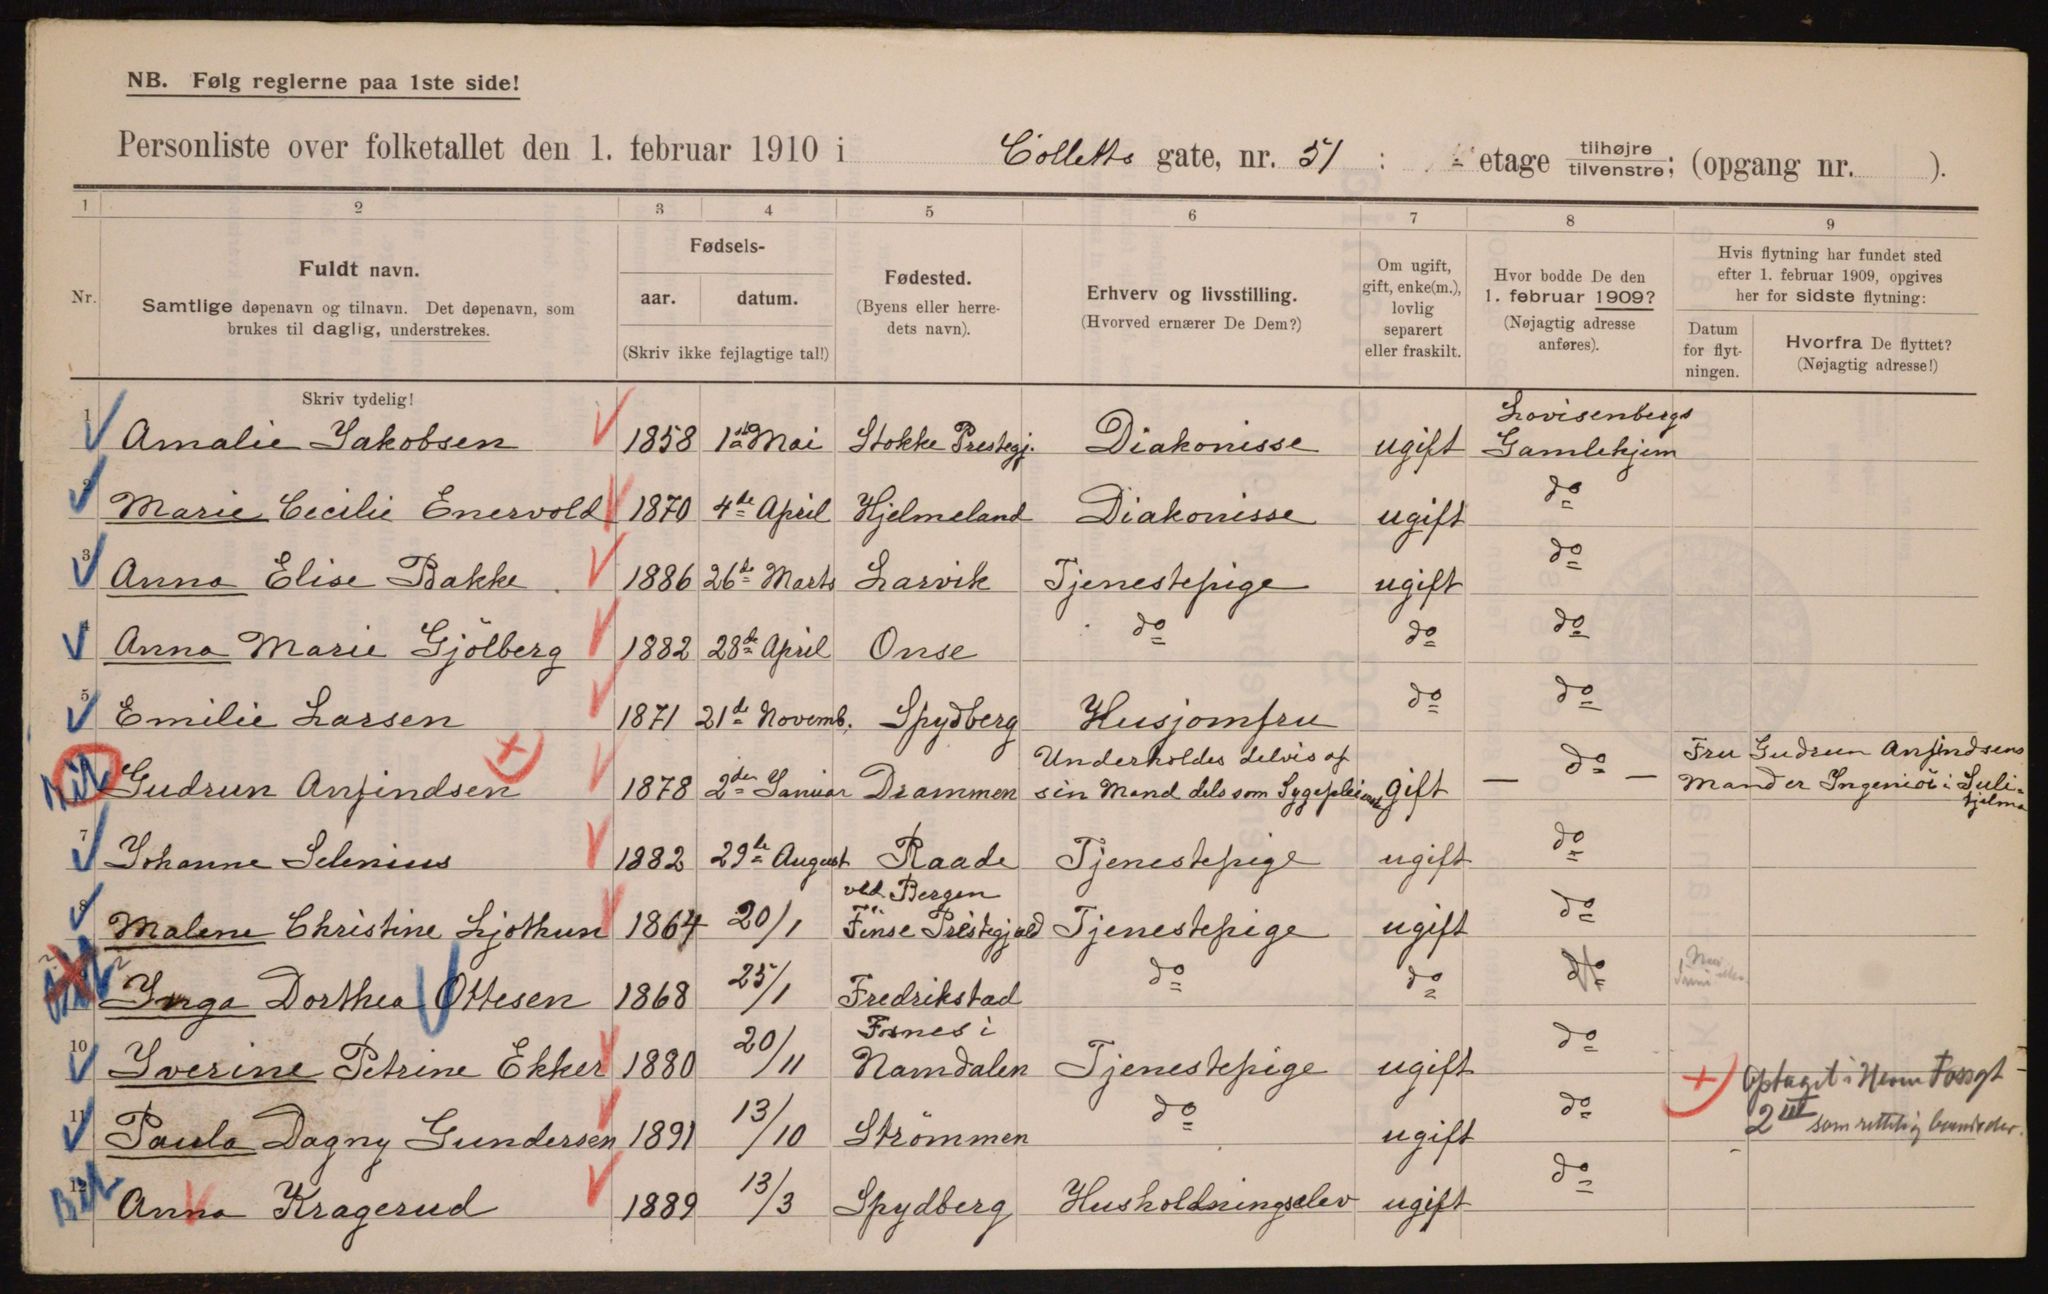 NB. Følg reglerne paa 1ste side!
Personliste over folketallet den 1. februar 1910 i Colletts gate, nr. 51 : etage tilhøjre/tilvenstre; (opgang nr. ).
1 2 3 4 5 6 7 8 9
Nr.
Fuldt navn.
Samtlige døpenavn og tilnavn. Det døpenavn, som
brukes til daglig, understrekes.
Fødsels-
aar. datum.
(Skriv ikke fejlagtige tal!)
Fødested.
(Byens eller herre-
dets navn).
Erhverv og livsstilling.
(Hvorved ernærer De Dem?)
Om ugift,
gift, enke(m.),
lovlig
separert
eller fraskilt.
Hvor bodde De den
1. februar 1909?
(Nøjagtig adresse
anføres).
Hvis flytning har fundet sted
efter 1. februar 1909, opgives
her for sidste flytning:
Datum
for flyt-
ningen.
Hvorfra De flyttet?
(Nøjagtig adresse!)
Skriv tydelig!
1 Amalie Jakobsen 1858 1ste Mai Stokke Prestegj. Diakonisse ugift Lovisenbergs
Gamlehjem
2 Marie Cecilie Enervold 1870 4de April Hjelmeland Diakonisse ugift do
3 Anna Elise Bakke 1886 26de Marts Larvik Tjenestepige ugift do
4 Anna Marie Gjölberg 1882 28de April Onse do do do
5 Emilie Larsen 1871 21de Novemb. Spydberg Husjomfru do do
Gudrun Anfindsen 1878 2den Januar Drammen Underholdes delvis af
sin Mand dels som Gift — do — Fru Gudrun Anfindsens
Mand er Ingeniör i Suli-
tjelma
7 Johanne Selenius 1882 29de August Raade Tjenestepige ugift do
8 Malene Christine Ljothun 1864 20/1 ved. Bergen
Finse Tjenestepige ugift do
Inga Dorthea Ottesen 1868 25/1 Fredrikstad do do do
10 Iverine Petrine Ekker 1880 20/11 Fosnes i
Namdalen Tjenestepige ugift do
11 Paula Dagny Gundersen 1891 13/10 Strömmen do ugift do
Optaget i
2 som rettelig
12 Anna Kragerud 1889 13/3 Spydberg Husholdningselev ugift do